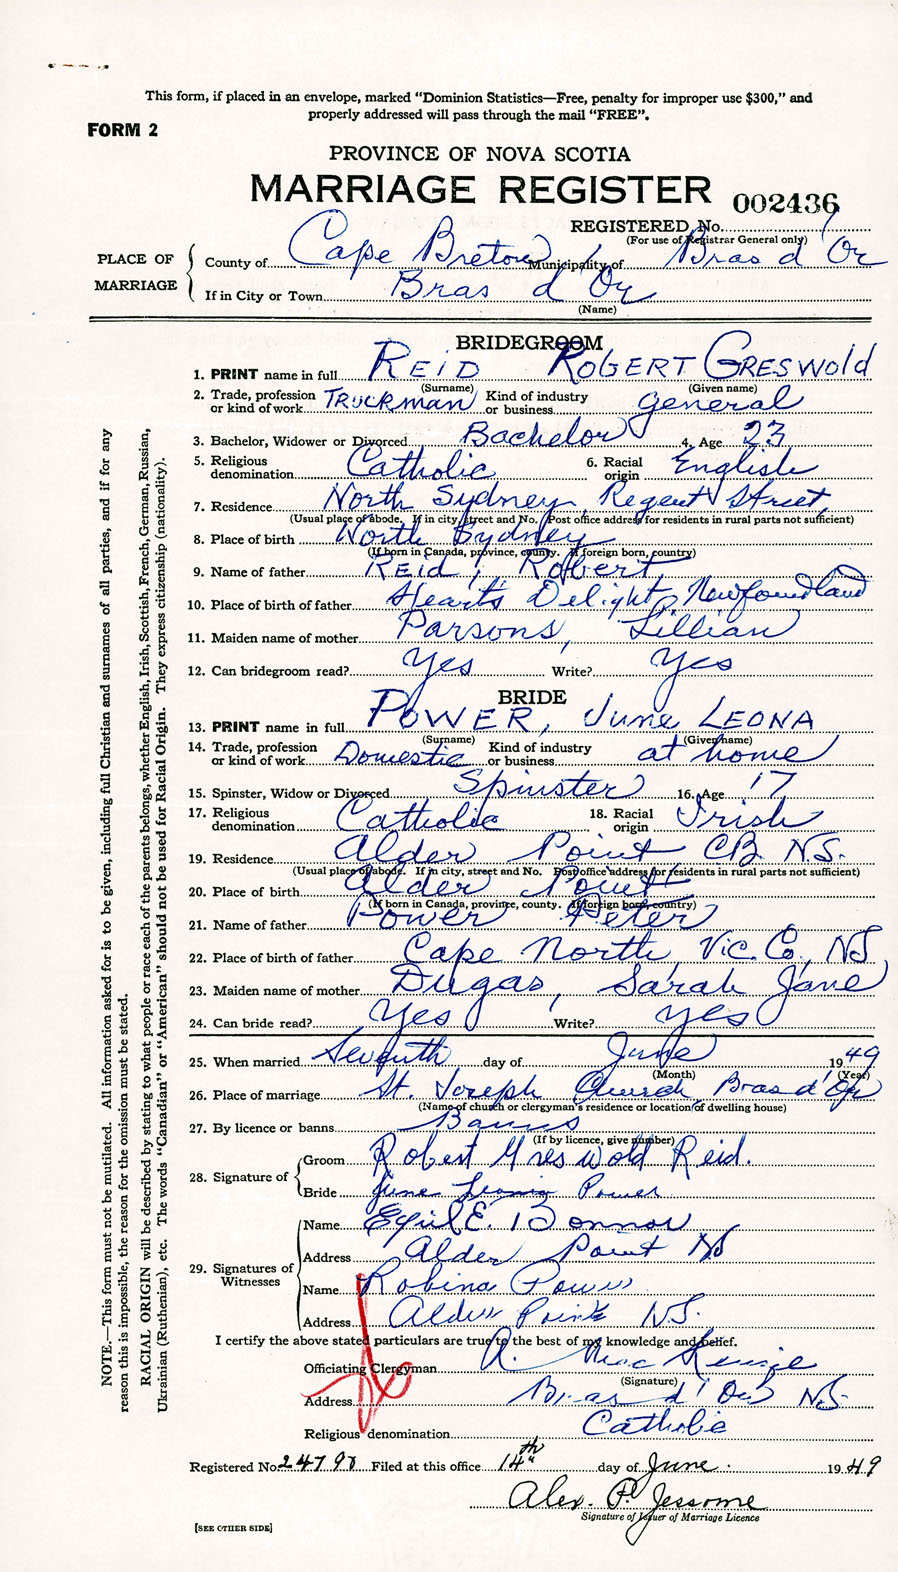 This form, if placed in an envelope, marked “Dominion Statistics—Free, penalty for improper use $300,” and
properly addressed will pass through the mail “FREE”.
FORM 2
PROVINCE OF NOVA SCOTIA
MARRIAGE REGISTER 002436
REGISTERED No.
(For use of Registrar General only)
PLACE OF MARRIAGE
County of Cape Breton Municipality of Bras d'Or
If in City or Town Bras d'Or
(Name)
BRIDEGROOM
1. PRINT name in full REID ROBERT GRESWOLD
(Surname) (Given name)
2. Trade, profession or kind of work TRUCKMAN Kind of industry or business general
3. Bachelor, Widower or Divorced Bachelor 4. Age 23
5. Religious denomination Catholic 6. Racial origin English
7. Residence North Sydney, Regent Street,
(Usual place of abode. If in city, street and No. Post office address for residents in rural parts not sufficient)
8. Place of birth North Sydney
(If born in Canada, province, county. If foreign born, country)
9. Name of father Reid, Robert
10. Place of birth of father Hearts Delight, Newfoundland
11. Maiden name of mother Parsons, Lillian
12. Can bridegroom read? Yes Write? Yes
BRIDE
13. PRINT name in full POWER, June LEONA
(Surname) (Given name)
14. Trade, profession or kind of work Domestic Kind of industry or business at home
15. Spinster, Widow or Divorced Spinster 16. Age 17
17. Religious denomination Catholic 18. Racial origin Irish
19. Residence Alder Point CB. N.S.
(Usual place of abode. If in city, street and No. Post office address for residents in rural parts not sufficient)
20. Place of birth Alder Point
(If born in Canada, province, county. If foreign born, country)
21. Name of father Power Peter
22. Place of birth of father Cape North, Vic. Co., NS
23. Maiden name of mother Dugas, Sarah Jane
24. Can bride read? Yes Write? Yes
25. When married Seventh day of June 1949
(Month) (Year)
26. Place of marriage St. Joseph Church, Bras d'Or
(Name of church or clergyman's residence or location of dwelling house)
27. By licence or banns Banns
(If by licence, give number)
28. Signature of
Groom Robert Greswold Reid.
Bride June Power
29. Signatures of Witnesses
Name E.
Address Alder Point NS
Name Robina Power
Address Alder Point NS.
I certify the above stated particulars are true to the best of my knowledge and belief.
Officiating Clergyman A. MacKenzie
(Signature)
Address Bras d'Or NS.
Religious denomination Catholic
Registered No. 24798 Filed at this office 14th day of June. 1949
Alex. P. Jessome
Signature of Issuer of Marriage Licence
[SEE OTHER SIDE]
NOTE.—This form must not be mutilated. All information asked for is to be given, including full Christian and surnames of all parties, and if for any
reason this is impossible, the reason for the omission must be stated.
RACIAL ORIGIN will be described by stating to what people or race each of the parents belongs, whether English, Irish, Scottish, French, German, Russian,
Ukrainian (Ruthenian), etc. The words “Canadian” or “American” should not be used for Racial Origin. They express citizenship (nationality).